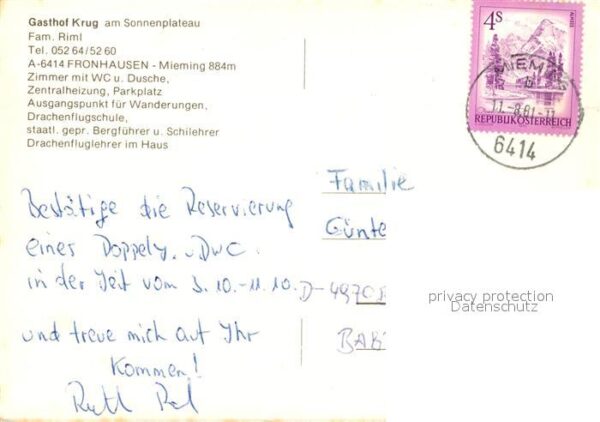 Gasthof Krug am Sonnenplateau
Fam. Riml
Tel. 052 64/52 60
A-6414 FRONHAUSEN - Mieming 884m
Zimmer mit WC u. Dusche,
Zentralheizung, Parkplatz
Ausgangspunkt für Wanderungen,
Drachenflugschule,
staatl. gepr. Bergführer u. Schilehrer
Drachenfluglehrer im Haus
4S
REPUBLIK ÖSTERREICH
11.-8.81-11
6414
Bestätige die Reservierung
eines Doppelz.
in der Zeit vom 3.10.-11.10.
und freue mich auf Ihr
Kommen!
Familie
Günte
D-4970
BAD
privacy protection
Datenschutz